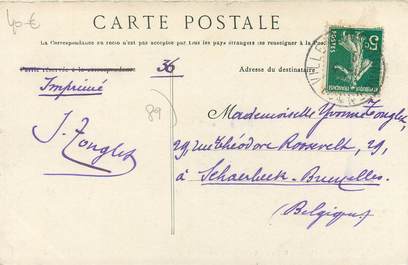 40€
CARTE POSTALE
La Correspondance au recto n'est pas acceptée par tous les pays étrangers (se renseigner à la Poste)
Partie réservée à la correspondance
36
Adresse du destinataire
Imprimé
89
J. Tonglet
Mademoiselle Yvonne Tonglet,
29, rue Théodore Roosevelt, 29,
à Schaerbeek-Bruxelles.
(Belgique)
5c
POSTES
REPUBLIQUE FRANÇAISE